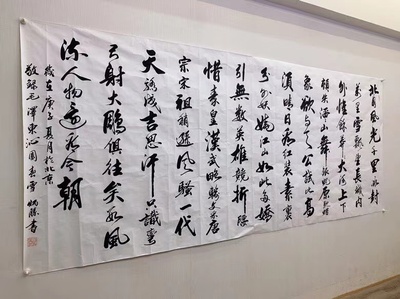 北国风光千里冰封
万里雪飘望长城内
外惟余莽莽大河上下
顿失滔滔山舞银蛇原驰蜡
象欲与天公试比高
须晴日看红装素裹
分外妖娆江山如此多娇
引无数英雄竞折腰
惜秦皇汉武略输文采唐
宗宋祖稍逊风骚一代
天骄成吉思汗只识弯
弓射大雕俱往矣数风
流人物还看今朝
岁在庚子夏月於北京
敬録毛泽东沁园春雪 书